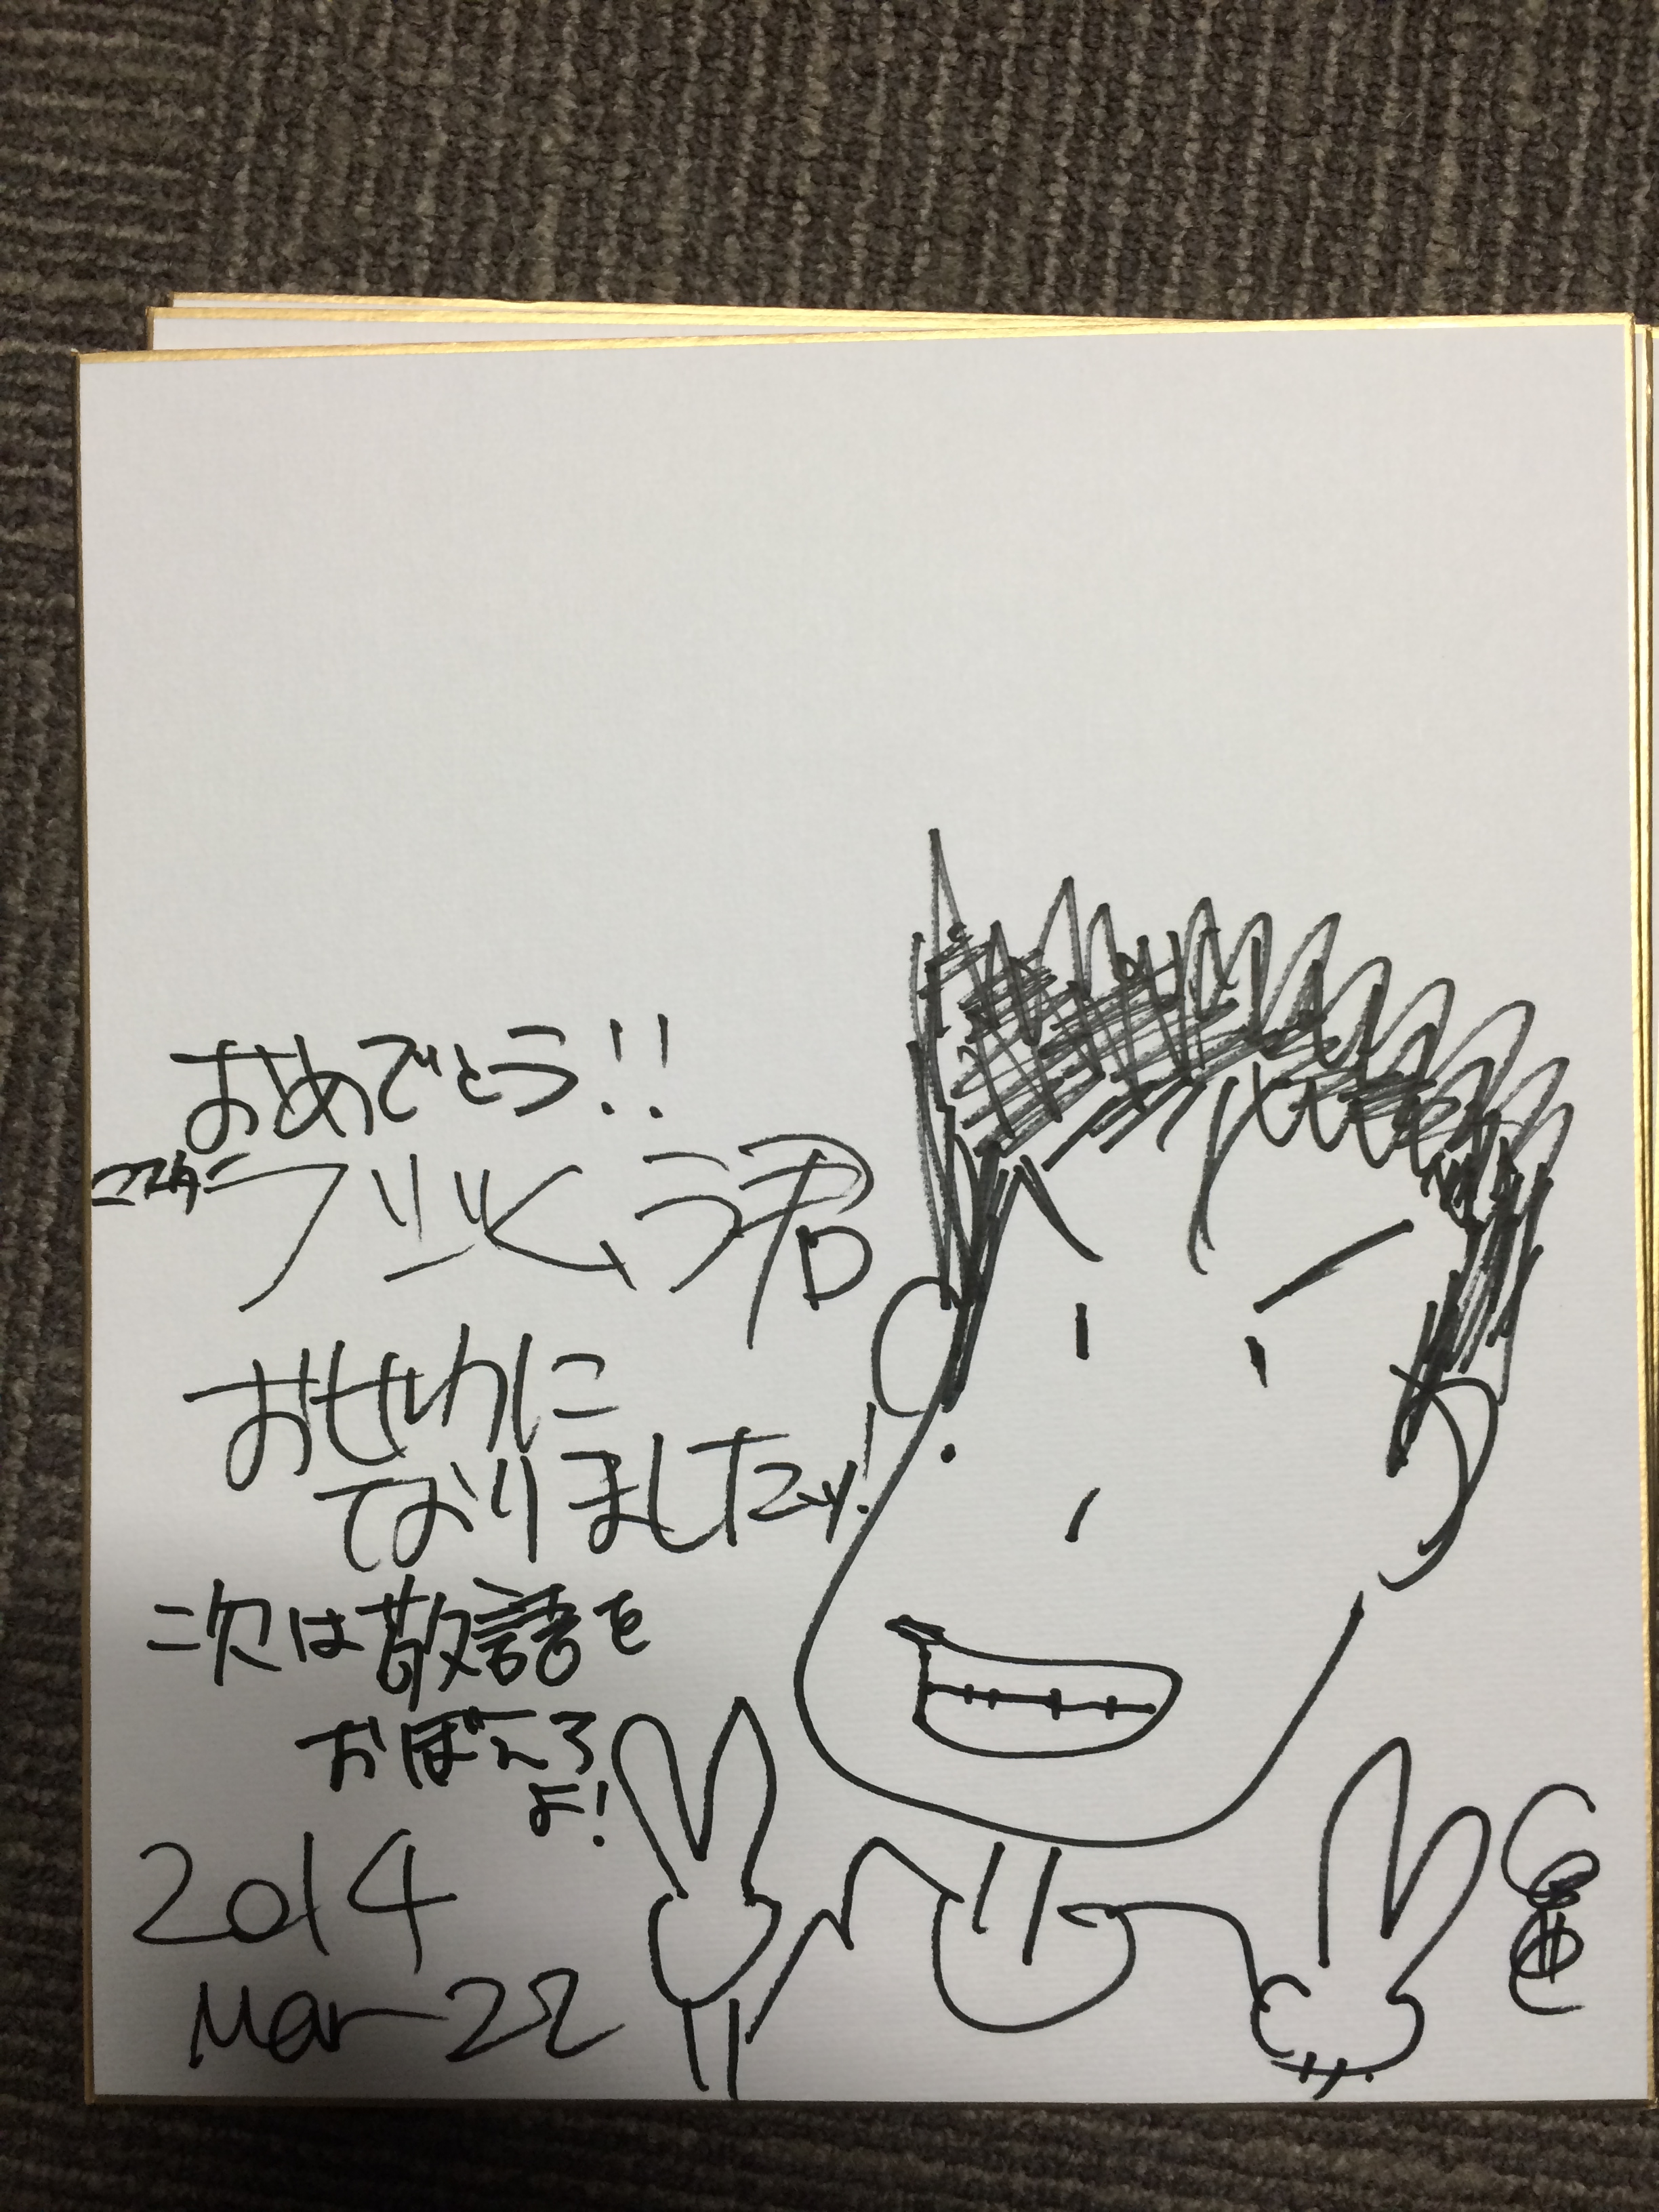 おめでとう!!
君
おせわに
なりましたッ!
次は敬語を
おぼえろ
よ!
2014
Mar 22